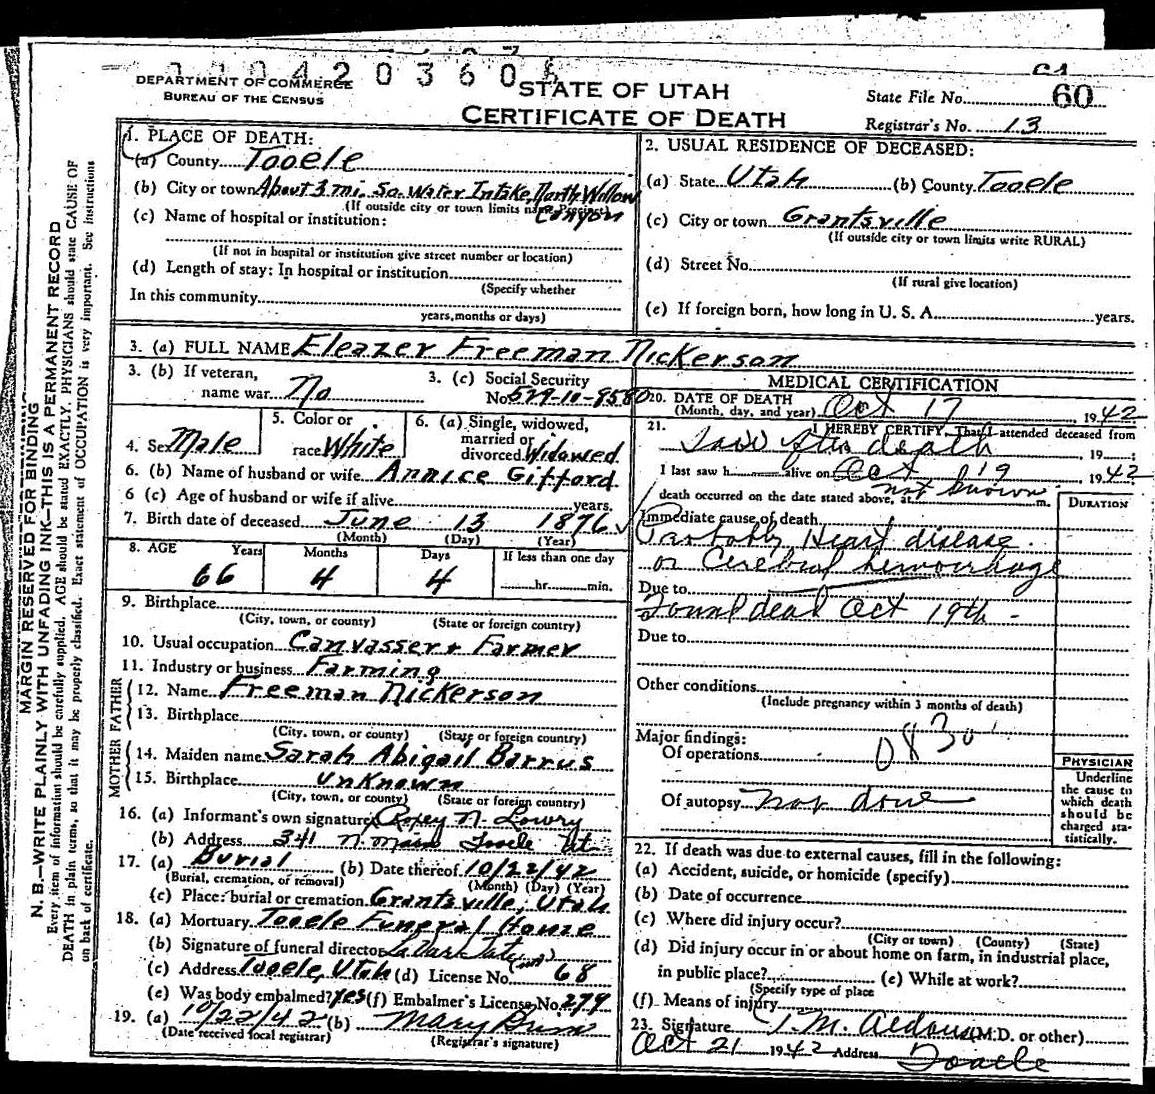 1104203606
DEPARTMENT OF COMMERCE
BUREAU OF THE CENSUS
STATE OF UTAH
CERTIFICATE OF DEATH
State File No. 60
Registrar's No. 13
MARGIN RESERVED FOR BINDING
N. B.—WRITE PLAINLY WITH UNFADING INK—THIS IS A PERMANENT RECORD
Every item of information should be carefully supplied. AGE should be stated EXACTLY. PHYSICIANS should state CAUSE OF
DEATH in plain terms, so that it may be properly classified. Exact statement of OCCUPATION is very important. See instructions
on back of certificate.
1. PLACE OF DEATH:
(a) County Tooele
(b) City or town About 3 mi. So. Water Intake, North Willow
(If outside city or town limits name Precinct) Canyon
(c) Name of hospital or institution:
(If not in hospital or institution give street number or location)
(d) Length of stay: In hospital or institution
(Specify whether
In this community
years, months or days)
2. USUAL RESIDENCE OF DECEASED:
(a) State Utah (b) County Tooele
(c) City or town Grantsville
(If outside city or town limits write RURAL)
(d) Street No.
(If rural give location)
(e) If foreign born, how long in U. S. A. years.
3. (a) FULL NAME Eleazer Freeman Nickerson
3. (b) If veteran,
name war No
3. (c) Social Security
No. 529-10-9580
4. Sex Male
5. Color or
race White
6. (a) Single, widowed,
married or
divorced Widowed
6. (b) Name of husband or wife Annice Gifford
6 (c) Age of husband or wife if alive years.
7. Birth date of deceased June 13 1876
(Month) (Day) (Year)
8. AGE Years Months Days If less than one day
66 4 4 hr. min.
9. Birthplace
(City, town, or county) (State or foreign country)
10. Usual occupation Canvasser & Farmer
11. Industry or business Farming
FATHER
12. Name Freeman Nickerson
13. Birthplace
(City, town, or county) (State or foreign country)
MOTHER
14. Maiden name Sarah Abigail Barrus
15. Birthplace unknown
(City, town, or county) (State or foreign country)
16. (a) Informant's own signature N. Lowry
(b) Address 341 N. Main Tooele Ut
17. (a) Burial (b) Date thereof 10/22/42
(Burial, cremation, or removal) (Month) (Day) (Year)
(c) Place: burial or cremation Grantsville, Utah
18. (a) Mortuary Tooele Funeral Home
(b) Signature of funeral director
(c) Address Tooele, Utah (d) License No. 68
(e) Was body embalmed? Yes (f) Embalmer's License No. 279
19. (a) 10/22/42 (b) Mary
(Date received local registrar) (Registrar's signature)
MEDICAL CERTIFICATION
20. DATE OF DEATH
(Month, day, and year) Oct 17 1942
21. I HEREBY CERTIFY, That I attended deceased from
Saw after death, 19
I last saw h alive on Oct 19 1942
death occurred on the date stated above, at not known m.
DURATION
Immediate cause of death
Probably Heart disease.
or Cerebral hemorrhage
Due to
Found dead Oct 19th -
Due to
Other conditions
(Include pregnancy within 3 months of death)
Major findings:
Of operations 0830
Of autopsy not done
PHYSICIAN
Underline
the cause to
which death
should be
charged sta-
tistically.
22. If death was due to external causes, fill in the following:
(a) Accident, suicide, or homicide (specify)
(b) Date of occurrence
(c) Where did injury occur?
(City or town) (County) (State)
(d) Did injury occur in or about home on farm, in industrial place,
in public place? (e) While at work?
(Specify type of place
(f) Means of injury
23. Signature T. M. Aldous (M.D. or other)
Oct 21 1942 Address Tooele